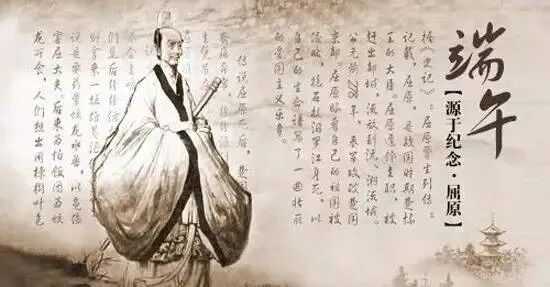 端午
【源于纪念·屈原】
据《史记》:屈原贾生列传:
记载,屈原,是战国时期楚怀
王的大臣。屈原遭馋去职,被
赶出都城,流放到沅、湘流域。
公元前278年,秦军攻破楚国
京都。屈原眼看自己的祖国被
侵略,抱石投汨罗江身死,以
自己的生命谱写了一曲壮丽
的爱国主义乐章。
传说屈原死后,楚国
们见后纷纷仿
则拿来一坛雄黄
说是要药晕蛟龙水兽,以免伤
害屈大夫。后来为怕饭团为蛟
龙所食,人们想出用楝树叶包